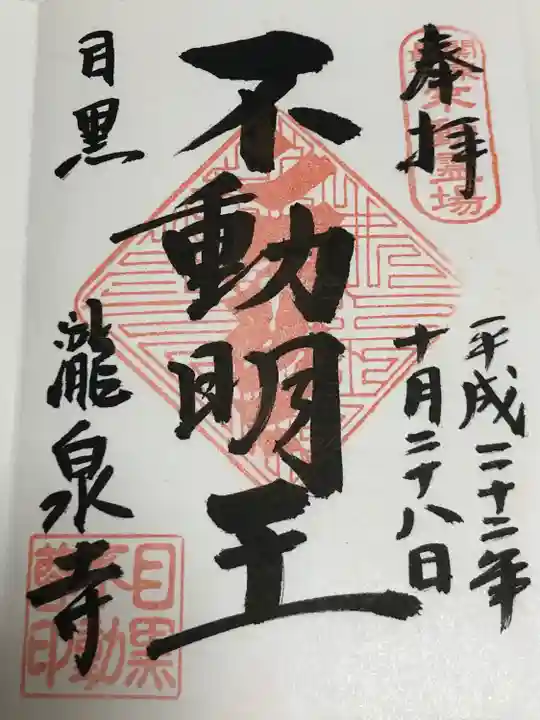 奉拝
平成二十二年
十月二十八日
不動明王
目黒
瀧泉寺
目黒
不動
尊印